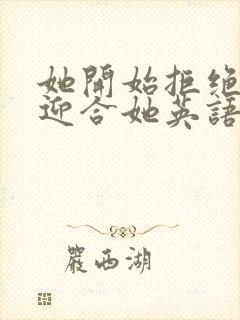 她開始拒絕
迎合她英語
嚴西湖